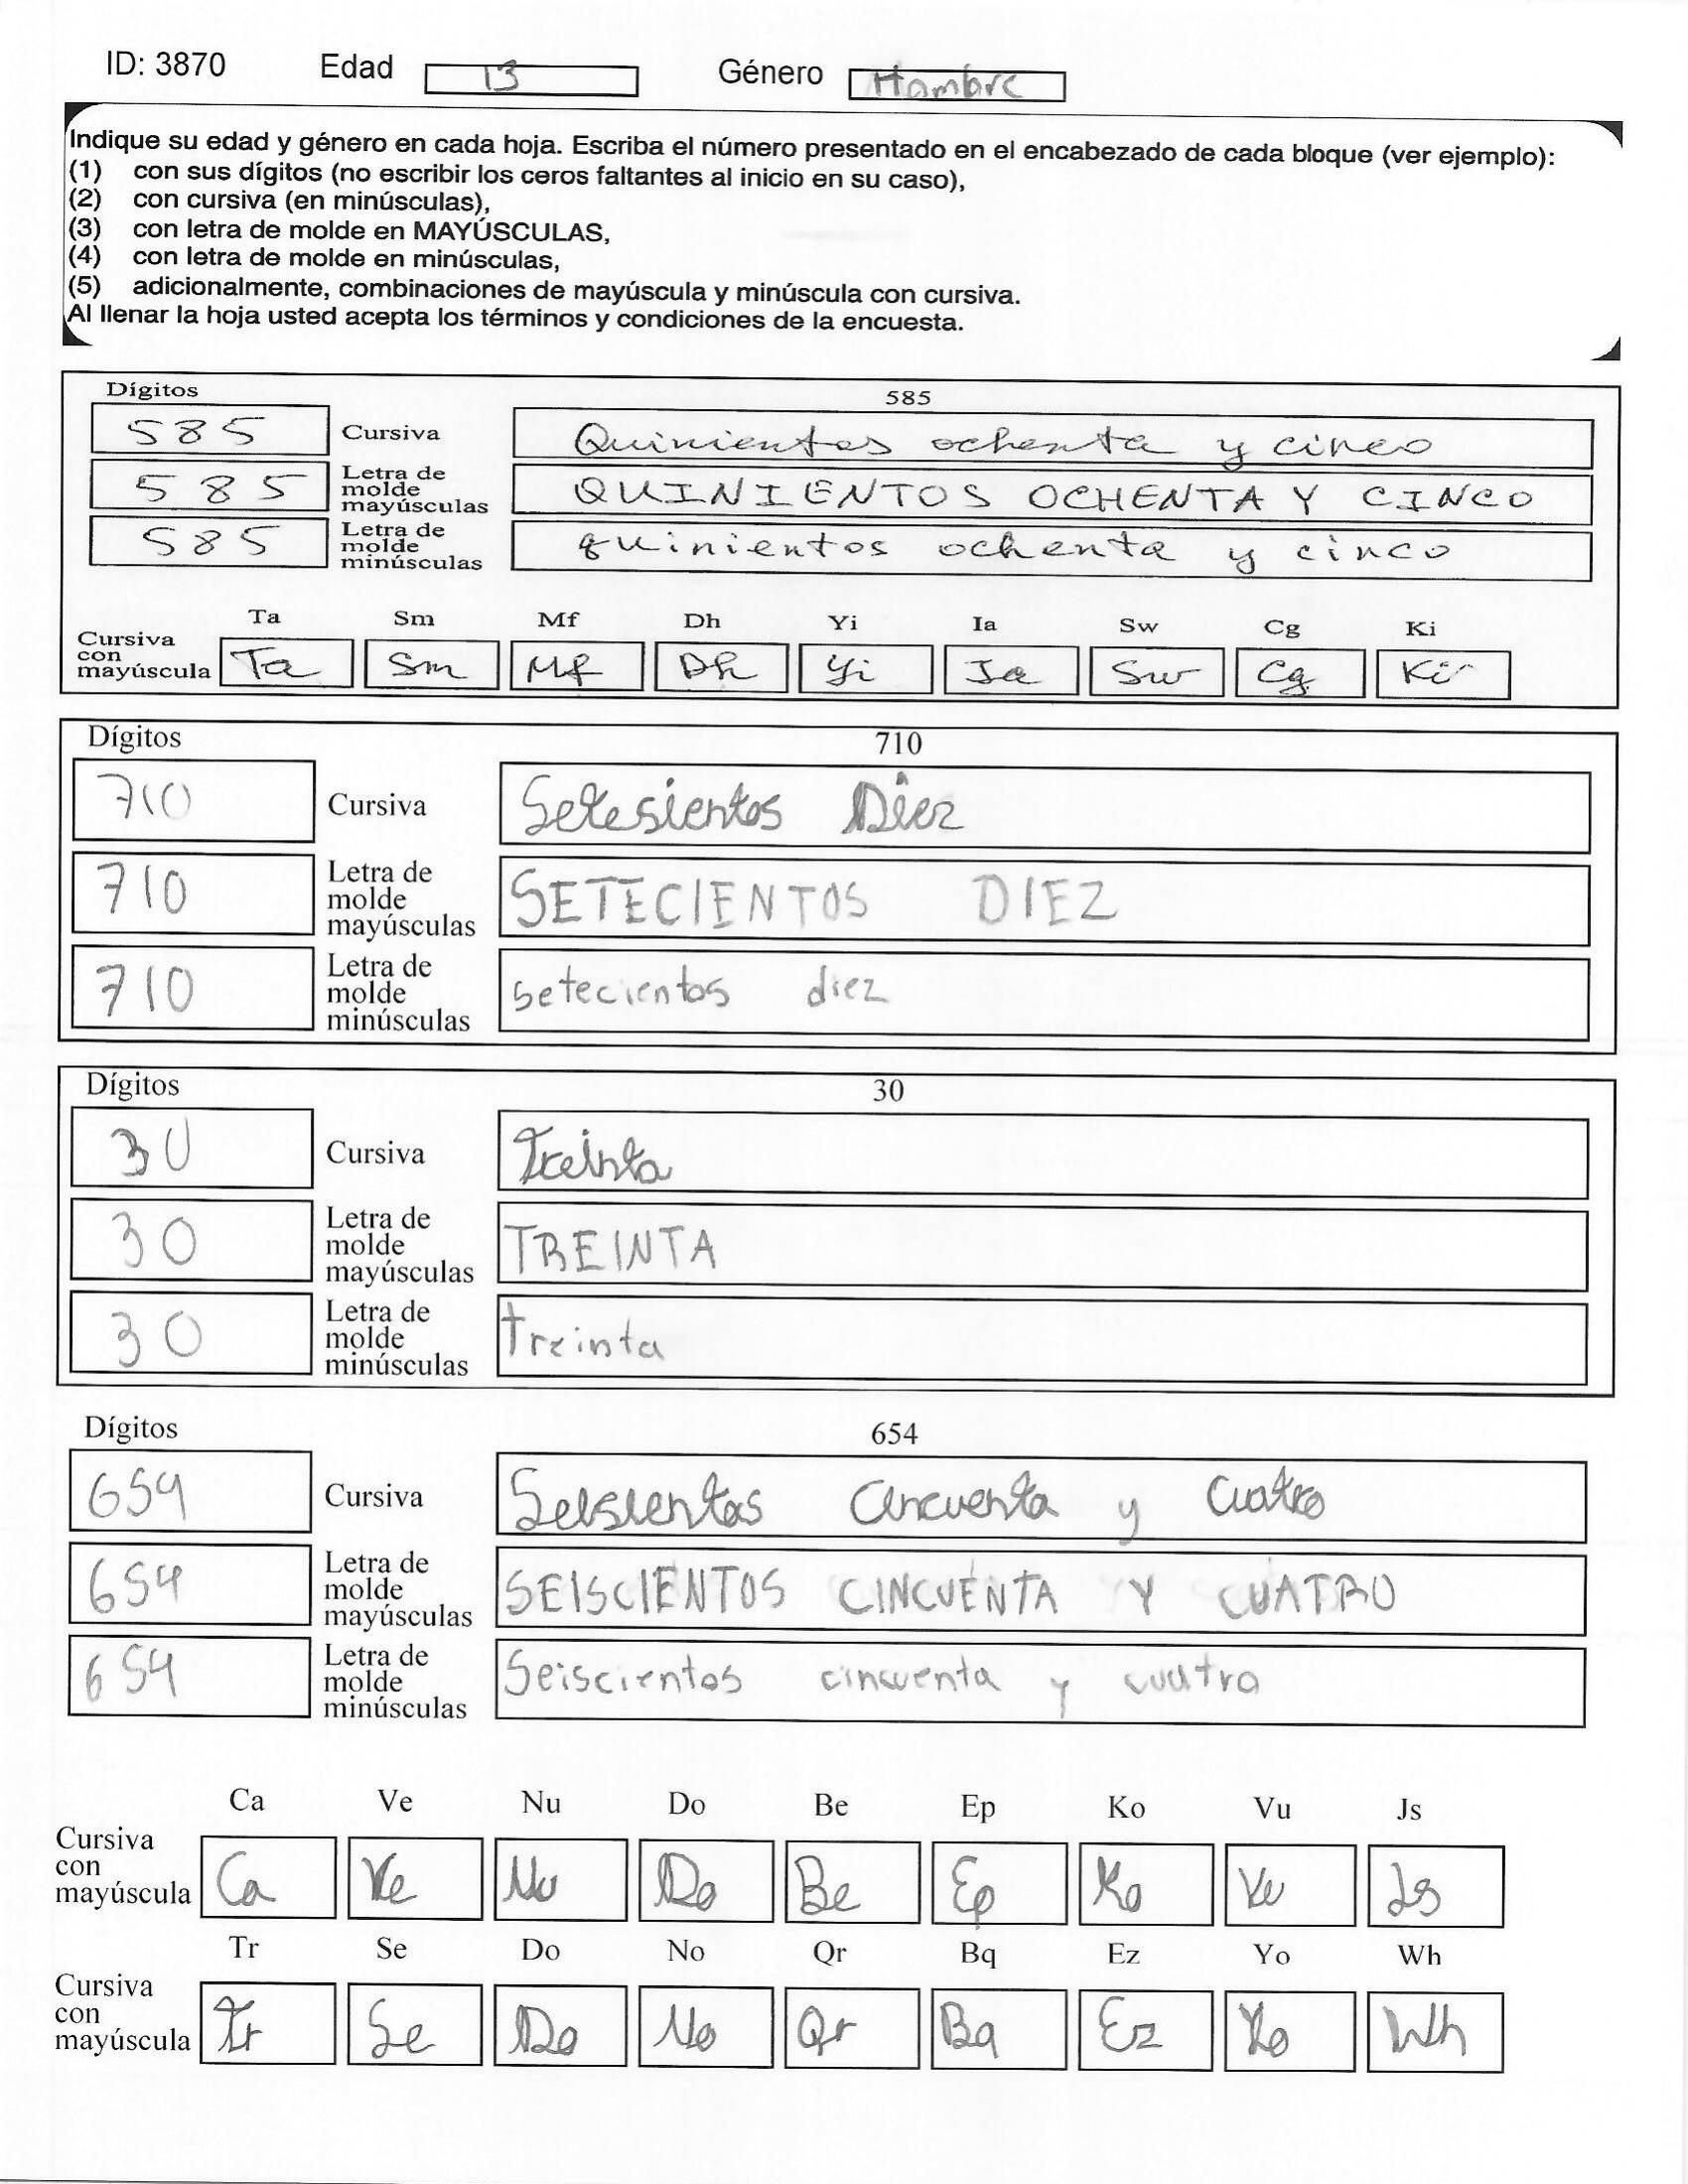 ID: 3870 Edad 13 Género Hombre
Indique su edad y género en cada hoja. Escriba el número presentado en el encabezado de cada bloque (ver ejemplo):
(1) con sus dígitos (no escribir los ceros faltantes al inicio en su caso),
(2) con cursiva (en minúsculas),
(3) con letra de molde en MAYÚSCULAS,
(4) con letra de molde en minúsculas,
(5) adicionalmente, combinaciones de mayúscula y minúscula con cursiva.
Al llenar la hoja usted acepta los términos y condiciones de la encuesta.
Dígitos 585
585 Cursiva Quinientos ochenta y cinco
585 Letra de molde mayúsculas QUINIENTOS OCHENTA Y CINCO
585 Letra de molde minúsculas quinientos ochenta y cinco
Ta Sm Mf Dh Yi Ia Sw Cg Ki
Cursiva con mayúscula Ta Sm Mf Dh Yi Ia Sw Cg Ki
Dígitos 710
710 Cursiva Setesientos Diez
710 Letra de molde mayúsculas SETECIENTOS DIEZ
710 Letra de molde minúsculas setecientos diez
Dígitos 30
30 Cursiva Treinta
30 Letra de molde mayúsculas TREINTA
30 Letra de molde minúsculas treinta
Dígitos 654
654 Cursiva Seisientos cincuenta y cuatro
654 Letra de molde mayúsculas SEISCIENTOS CINCUENTA Y CUATRO
654 Letra de molde minúsculas Seiscientos cincuenta y cuatro
Ca Ve Nu Do Be Ep Ko Vu Js
Cursiva con mayúscula Ca Ve Nu Do Be Ep Ko Vu Js
Tr Se Do No Qr Bq Ez Yo Wh
Cursiva con mayúscula Tr Se Do No Qr Bq Ez Yo Wh